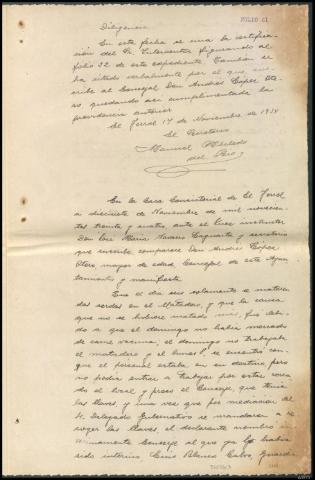 FOLIO 61
Diligencia
En esta fecha se une la certifica-
ción del Sr. Interventor figurando al
folio 32 de este expediente. Tambien se
ha citado verbalmente por el que sus-
cribe al Concejal Don Andrés López Ote-
ro quedando asi cumplimentada la
providencia anterior
El Ferrol 17 de Noviembre de 1934
El Secretario
Manuel
del Rio
En la Casa Consistorial de El Ferrol
a diecisiete de Noviembre de mil novecien-
tos treinta y cuatro ante el Juez instructor
Don José Maria y secretario
que suscribe comparece Don Andrés López
Otero mayor de edad, Concejal de este Ayun-
tamiento y manifiesta
Que el dia seis solamente se mataron
cerdos en el Matadero, y que la causa
que no se hubiere matado más, fue debi-
do a que el domingo no habia mercado
de carne vacuna, el domingo no trabajaba
el matadero y el lunes se encontró con
que el personal estaba en su destino pero
no podia entrar a trabajar por estar cerra-
do el local y preso el Conserje, que tenia
las llaves y una vez que por mediacion del
Sr. Delegado Gubernativo se mandaron a re-
coger las llaves el declarante nombró in-
terinamente Conserje al que ya lo habia
sido interino Luis Blanco Calvo, Guardia